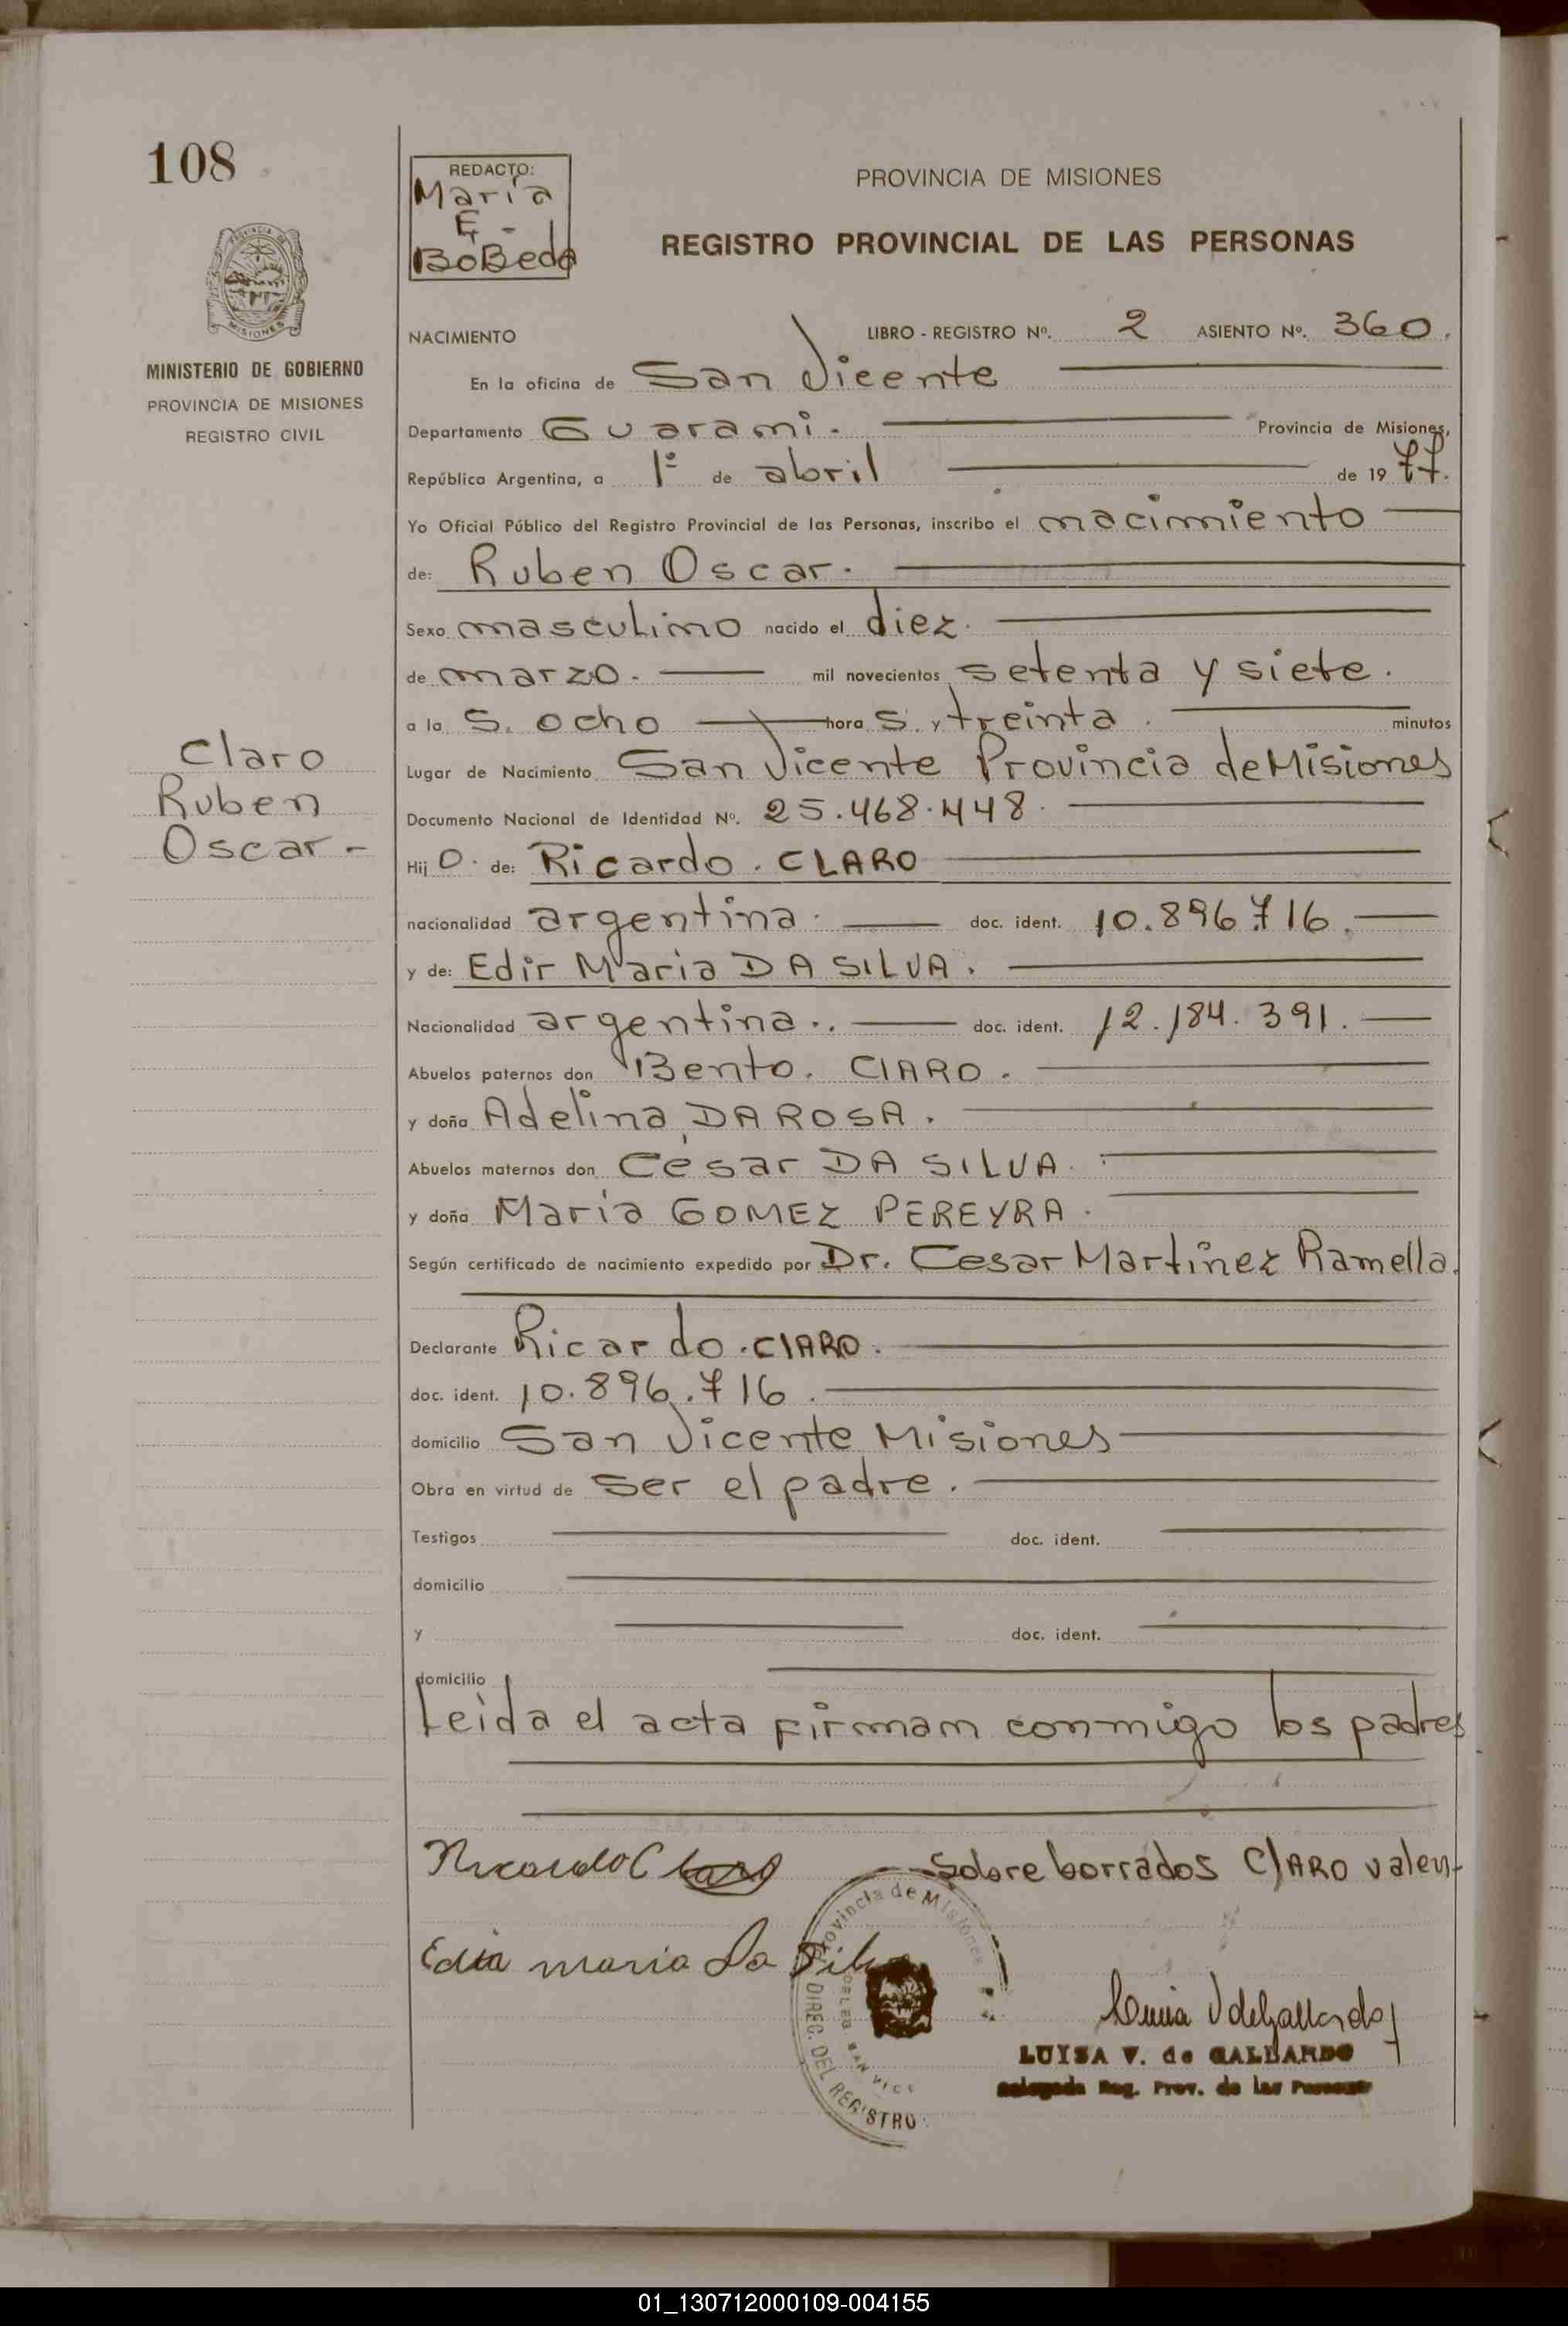 108
REDACTO:
Maria
E -
BoBeda
PROVINCIA DE MISIONES
REGISTRO PROVINCIAL DE LAS PERSONAS
PROVINCIA DE
MISIONES
MINISTERIO DE GOBIERNO
PROVINCIA DE MISIONES
REGISTRO CIVIL
NACIMIENTO LIBRO - REGISTRO Nº. 2 ASIENTO Nº. 360.
En la oficina de San Vicente
Departamento Guarami. Provincia de Misiones,
República Argentina, a 1º de abril de 1977.
Yo Oficial Público del Registro Provincial de las Personas, inscribo el nacimiento
de: Ruben Oscar.
Sexo masculino nacido el diez.
de marzo. mil novecientos setenta y siete.
a la s. ocho hora s. y treinta. minutos
Claro
Ruben
Oscar -
Lugar de Nacimiento San Vicente Provincia de Misiones
Documento Nacional de Identidad Nº. 25.468.448.
Hij o. de: Ricardo. CLARO
nacionalidad argentina. doc. ident. 10.896.716.
y de: Edir Maria DA SILVA.
Nacionalidad argentina.. doc. ident. 12.184.391.
Abuelos paternos don Bento. ClARO.
y doña Adelina DA ROSA.
Abuelos maternos don César DA SILVA.
y doña Maria GOMEZ PEREYRA.
Según certificado de nacimiento expedido por Dr. Cesar Martinez Ramella.
Declarante Ricardo. ClARO.
doc. ident. 10.896.716.
domicilio San Vicente Misiones
Obra en virtud de ser el padre.
Testigos doc. ident.
domicilio
y doc. ident.
domicilio
Leida el acta firmam conmigo los padres
Ricardo Claro
Sobre borrados ClARO valen-
Edia maria Da Silva
Provincia de Misiones
DIREC. DEL REGISTRO
Luisa V de Gallardo
LUISA V. de GALLARDO
Delegada Reg. Prov. de las Personas
01_130712000109-004155